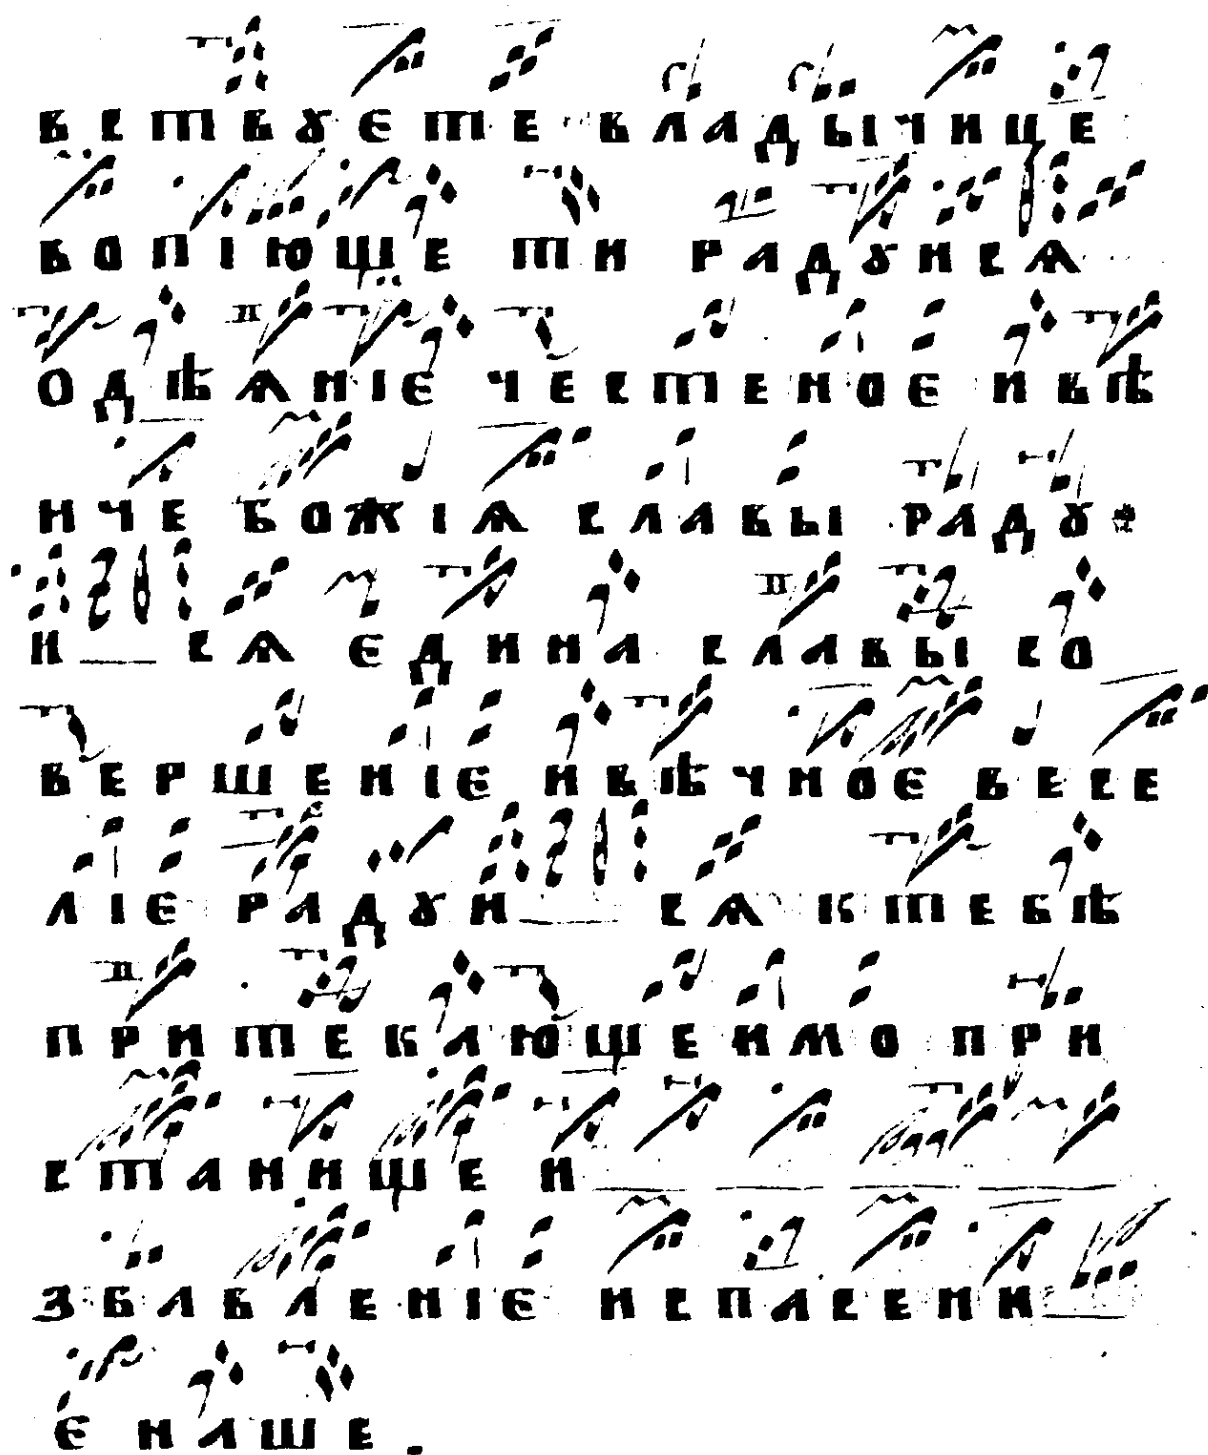 вствꙋєте владычице
вопіюще ти радꙋисѧ
одѣѧніє честеноє ивѣ
нче божіѧ славы радꙋ
и сѧ єдина славы со
вершеніє ивѣчноє весе
ліє радꙋи сѧ ктебѣ
притекающеимо при
станище и
збавленіє испасени
є наше.